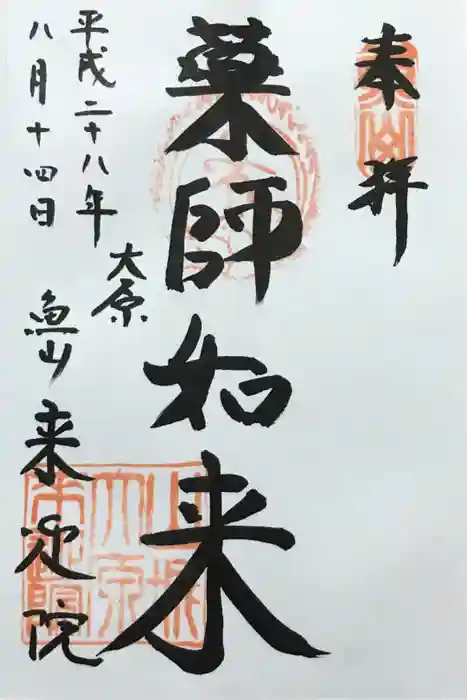 奉拝
薬師如来
大原
平成二十八年
八月十四日
魚山
来迎院